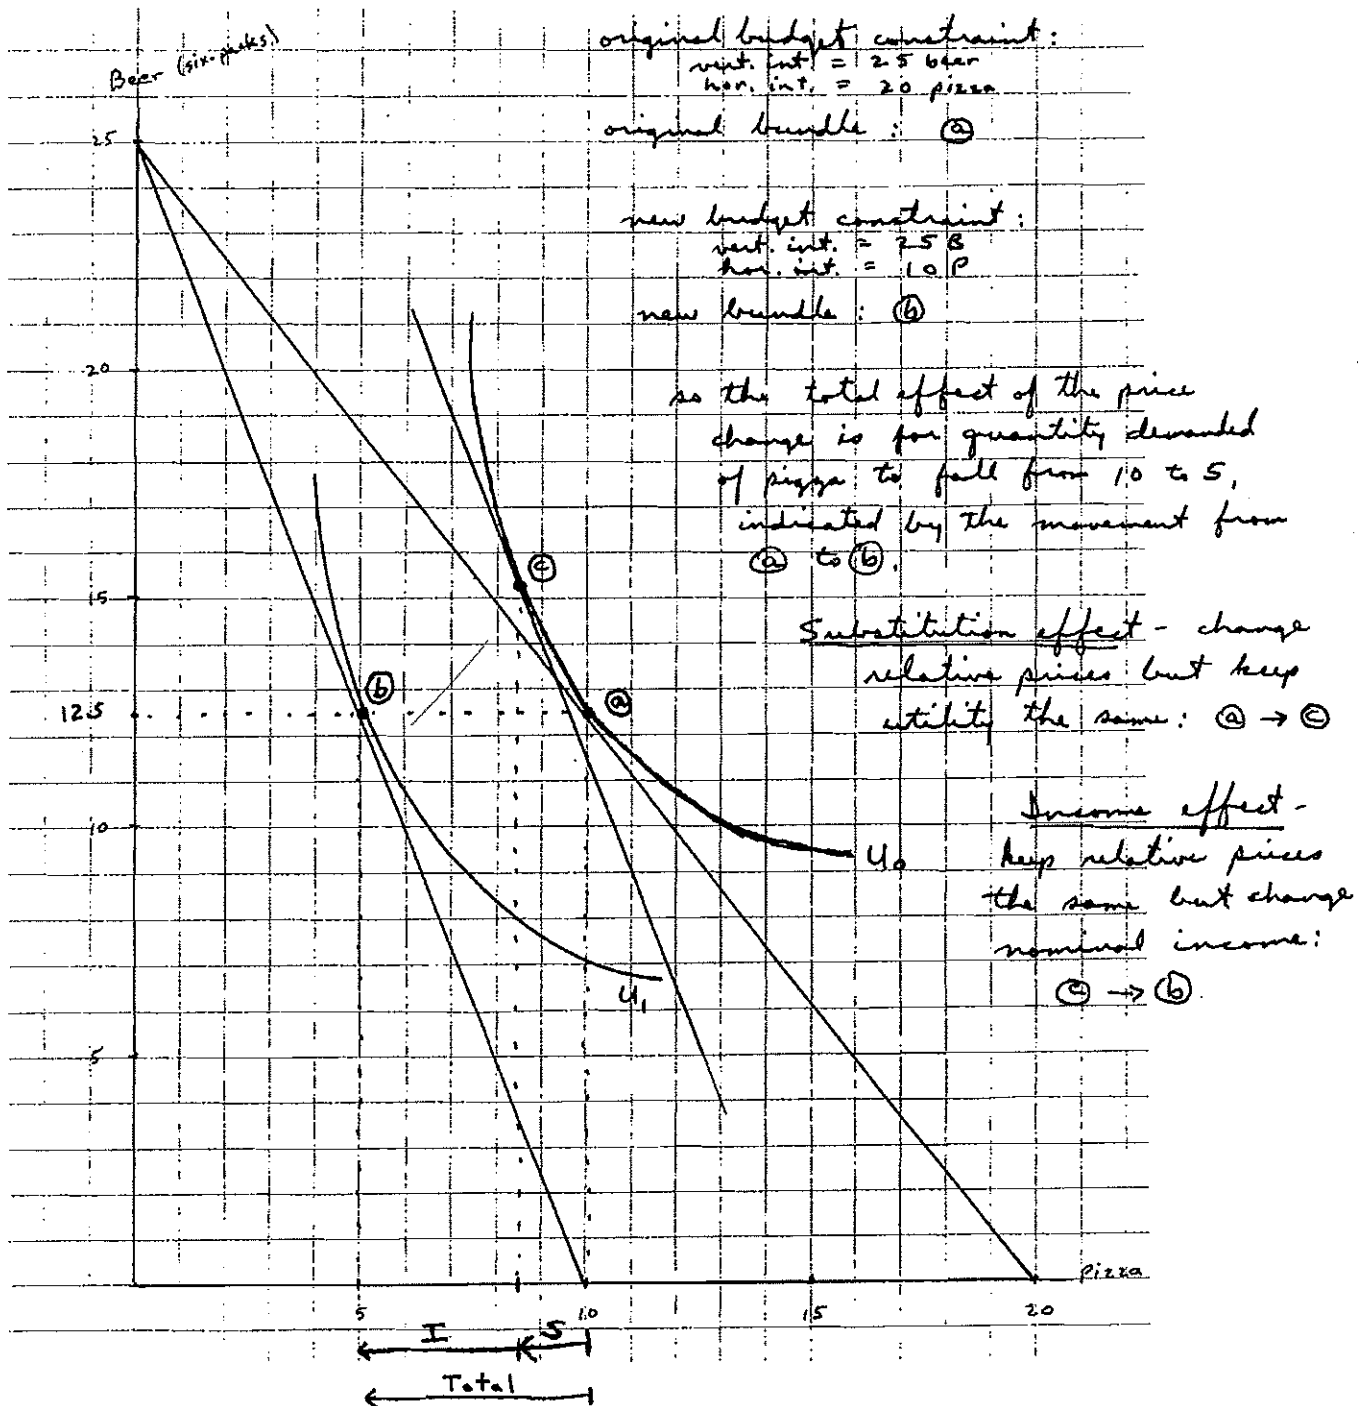 Beer (six-packs)
original budget constraint:
vert. int. = 25 beer
hor. int. = 20 pizza
original bundle : ⓐ
new budget constraint:
vert. int. = 25 B
hor. int. = 10 P
new bundle : ⓑ
so the total effect of the price
change is for quantity demanded
of pizza to fall from 10 to 5,
indicated by the movement from
ⓐ to ⓑ.
Substitution effect - change
relative prices but keep
utility the same: ⓐ → ⓒ
Income effect -
keep relative prices
the same but change
nominal income:
ⓒ → ⓑ.
25
20
15
12.5
10
5
ⓒ
ⓑ
ⓐ
U₀
U₁
pizza
5
10
15
20
I
S
Total